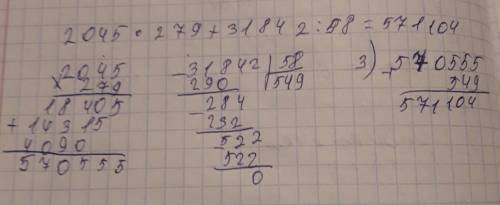 2045 · 279 + 31842 : 58 = 571104
2045
× 279
18405
+ 14315
4090
570555
- 31842 | 58
290 | 549
- 284
232
- 522
522
0
3) 570555
549
571104